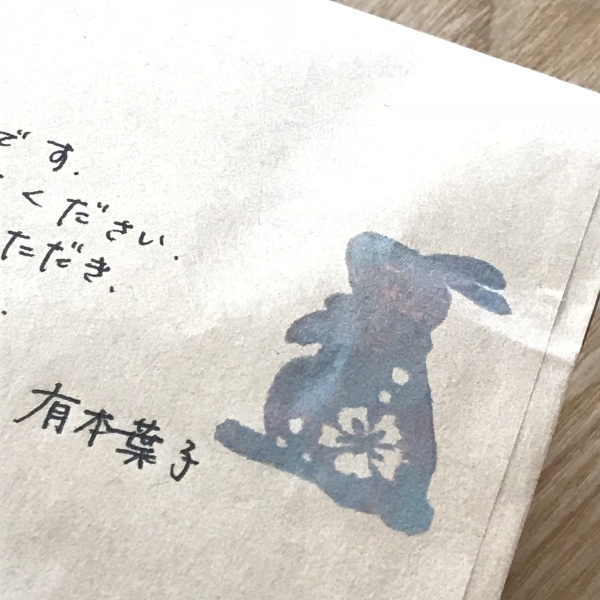 です.
ください.
ただき、
有本葉子